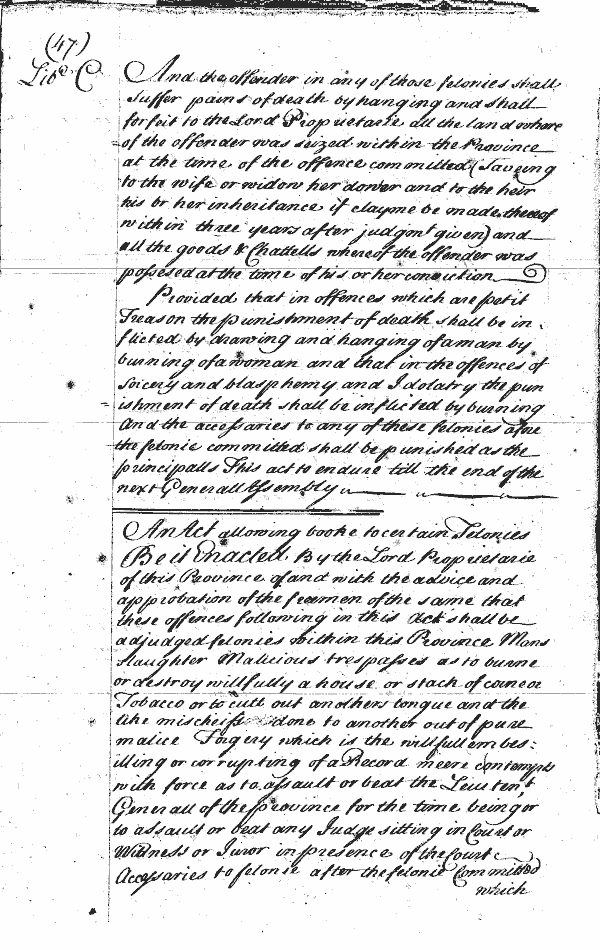 (47)
Libr. C
And the offender in any of those felonies shall
suffer pains of death by hanging and shall
forfeit to the Lord Proprietarie all the land whare
of the offender was seized within the Province
at the time of the offence committed (Saveing
to the wife or widow her dower and to the heir
his or her inheritance if clayme be made thereof
within three years after judgmt given) and
all the goods & Chattells whereof the offender was
possesed at the time of his or her conviction
Provided that in offences which are petit
Treason the punishment of death shall be in
flicted by drawing and hanging of a man by
burning of a woman and that in the offences of
Sorcery and blasphemy and Idolatry the pun
ishment of death shall be inflicted by burning
And the accessaries to any of these felonies afore
the felonie committed shall be punished as the
principalls This act to endure till the end of the
next Generall Assembly
An Act allowing booke to certain Felonies
Be it Enacted By the Lord Proprietarie
of this Province of and with the advice and
approbation of the freemen of the same that
these offences following in this Act shall be
adjudged felonies within this Province Mans
slaughter Malicious trespasses as to burne
or destroy willfully a house or stack of corne or
Tobacco or to cutt out anothers tongue and the
like mischeifs done to another out of pure
malice Forgery which is the willfull embes:
illing or corrupting of a Record meere contempts
with force as to assault or beat the Lieutent
Generall of the province for the time being or
to assault or beat any Judge sitting in Court or
Wittness or Juror in presence of the Court
Accessaries to felonie after the felonie Committed
which